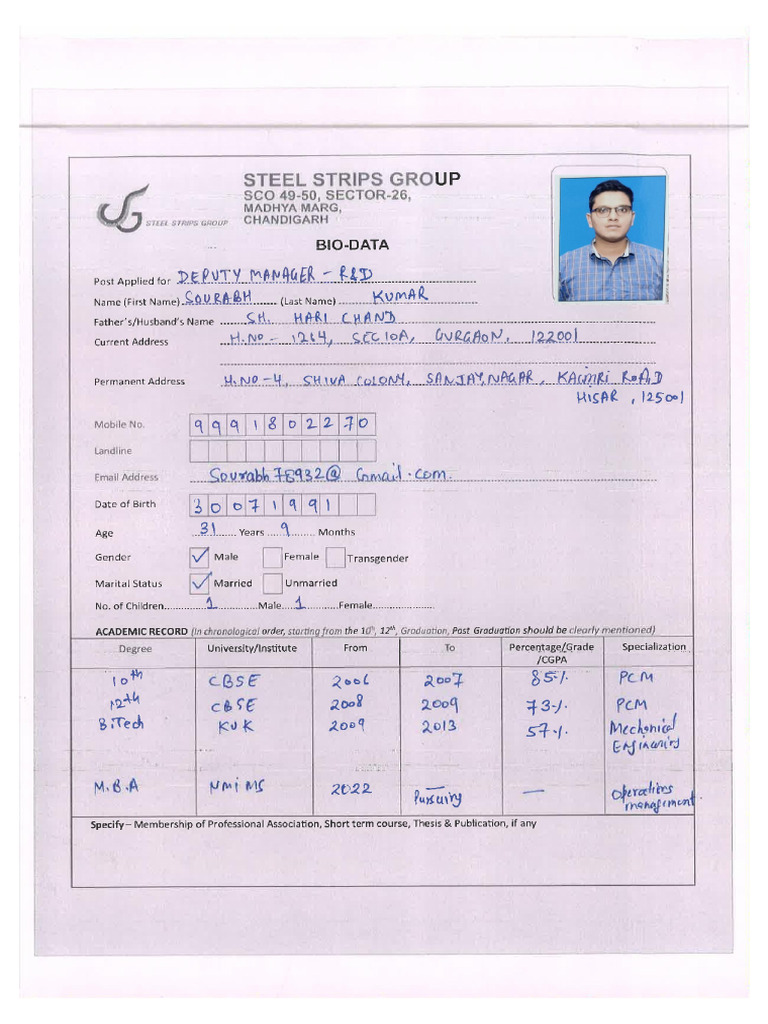 STEEL STRIPS GROUP
SCO 49-50, SECTOR-26,
MADHYA MARG,
CHANDIGARH
STEEL STRIPS GROUP
BIO-DATA
Post Applied for DEPUTY MANAGER - R&D
Name (First Name) SOURABH (Last Name) KUMAR
Father's/Husband's Name SH. HARI CHAND
Current Address H.NO - 1264, SEC 10A, GURGAON, 122001
Permanent Address H.NO - 4, SHIVA COLONY, SANJAY NAGAR, KAIMRI ROAD
HISAR, 125001
Mobile No. 9991802270
Landline
Email Address Sourabh78932@Gmail.com.
Date of Birth 30071991
Age 31 Years 9 Months
Gender ✓ Male Female Transgender
Marital Status ✓ Married Unmarried
No. of Children 1 Male 1 Female
ACADEMIC RECORD (In chronological order, starting from the 10th, 12th, Graduation, Post Graduation should be clearly mentioned)
Degree University/Institute From To Percentage/Grade/CGPA Specialization
10th CBSE 2006 2007 85% PCM
12th CBSE 2008 2009 73% PCM
B.Tech KUK 2009 2013 57% Mechanical Engineering
M.B.A NMiMS 2022 Pursuing — Operations management.
Specify – Membership of Professional Association, Short term course, Thesis & Publication, if any